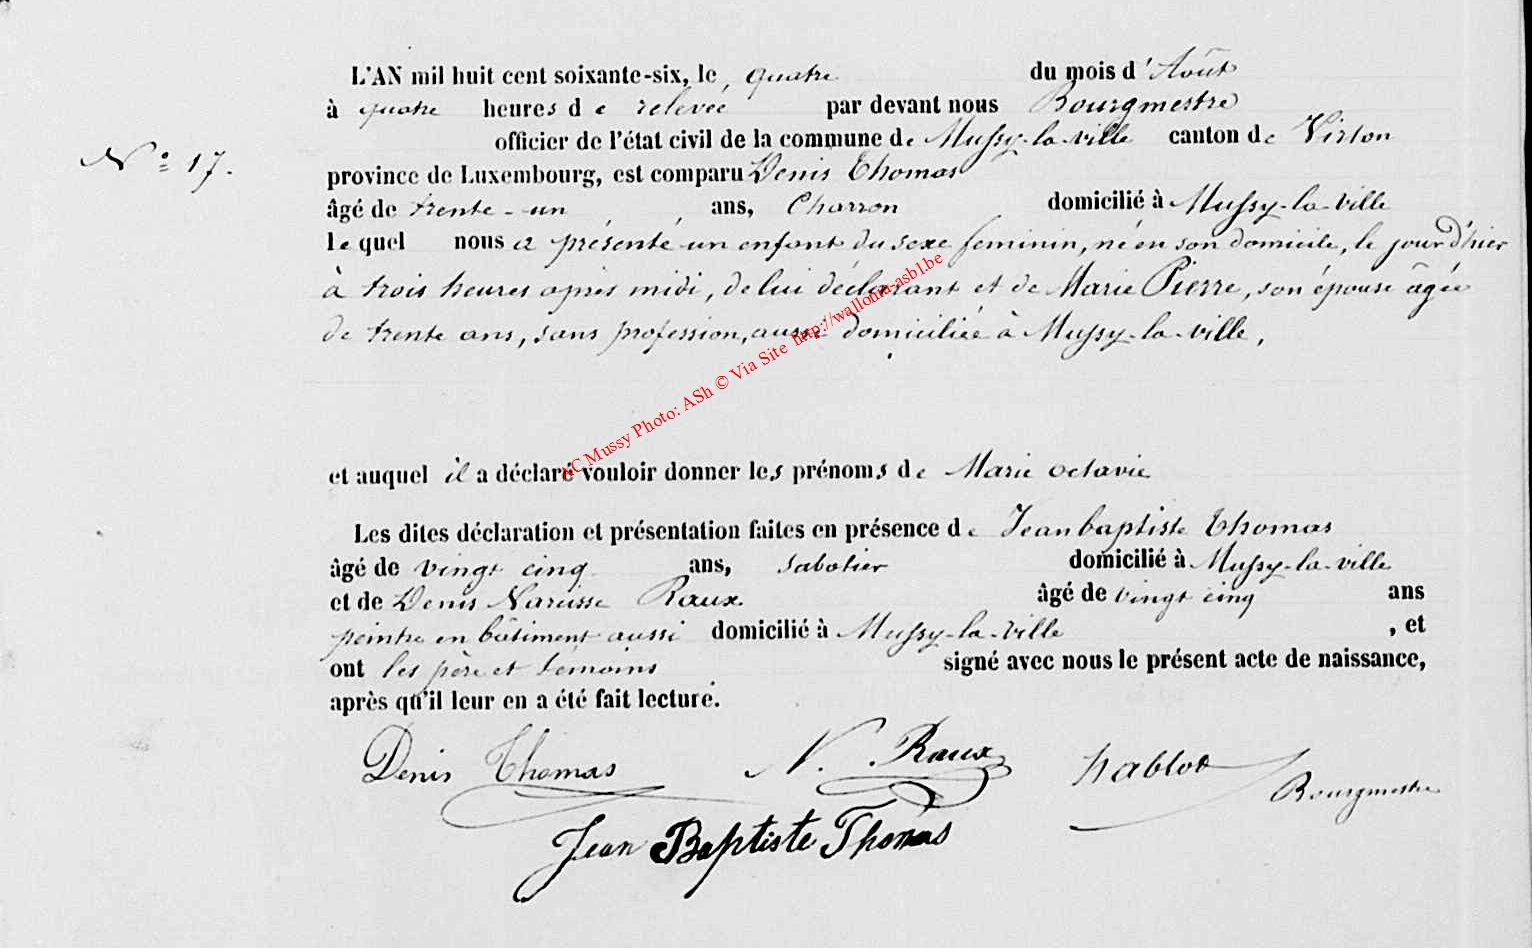 L'AN mil huit cent soixante-six, le quatre du mois d'Août
à quatre heures de relevée par devant nous Bourgmestre
officier de l'état civil de la commune de Mussy-la-ville canton de Virton
N° 17.
province de Luxembourg, est comparu Denis Thomas
âgé de trente-un ans, Charron domicilié à Mussy-la-ville
lequel nous a présenté un enfant du sexe feminin, né en son domicile, le jour d'hier
à trois heures après midi, de lui déclarant et de Marie Pierre, son épouse âgée
de trente ans, sans profession, aussi domiciliée à Mussy-la-ville,
AC Mussy Photo: ASh © Via Site http://wallonia-asbl.be
et auquel il a déclaré vouloir donner les prénoms de Marie octavie
Les dites déclaration et présentation faites en présence de Jean baptiste Thomas
âgé de vingt cinq ans, sabotier domicilié à Mussy-la-ville
et de Denis Narcisse Raux âgé de vingt cinq ans
peintre en bâtiment aussi domicilié à Mussy-la-ville , et
ont les père et témoins signé avec nous le présent acte de naissance,
après qu'il leur en a été fait lecture.
Denis Thomas N. Raux hablot Bourgmestre
Jean Baptiste Thomas